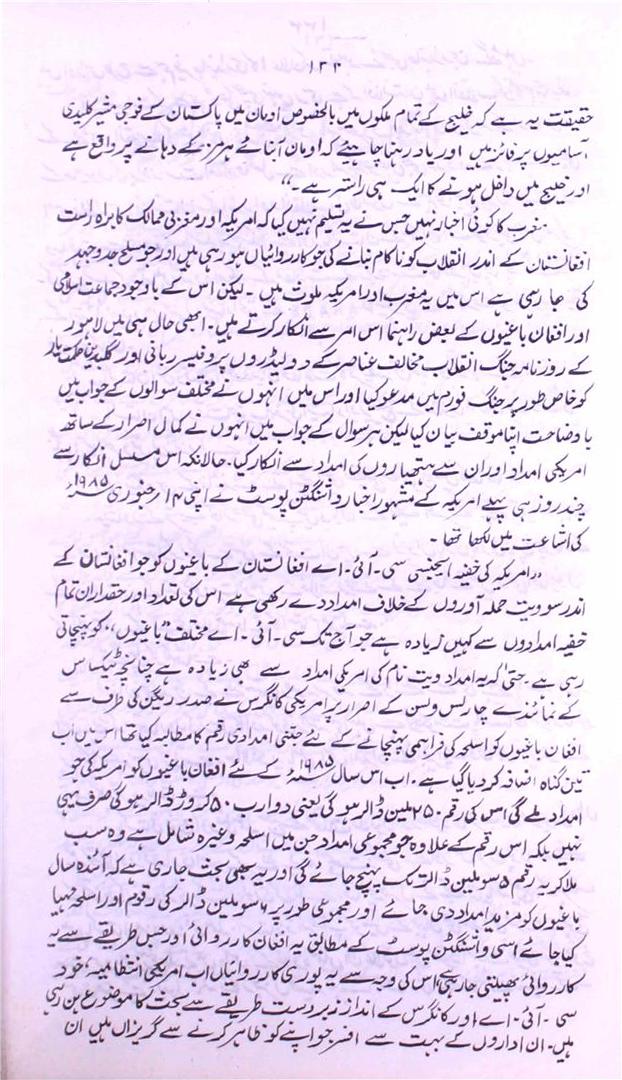 ۱۳۴
حقیقت یہ ہے کہ خلیج کے تمام ملکوں میں بالخصوص اومان میں پاکستان کے فوجی مشیر کلیدی
آسامیوں پر فائز ہیں اور یاد رہنا چاہیئے کہ اومان آبنائے ہرمز کے دہانے پر واقع ہے
اور خلیج میں داخل ہونے کا ایک ہی راستہ ہے۔"
مغرب کا کوئی اخبار نہیں جس نے یہ تسلیم نہیں کیا کہ امریکہ اور مغربی ممالک کا براہ راست
افغانستان کے اندر انقلاب کو ناکام بنانے کی جو کارروائیاں ہو رہی ہیں اور جو مسلح جدوجہد
کی جا رہی ہے اس میں یہ مغرب اور امریکہ ملوث ہیں۔ لیکن اس کے باوجود جماعت اسلامی
اور افغان باغیوں کے بعض راہنما اس امر سے انکار کرتے ہیں۔ ابھی حال ہی میں لاہور
کے روزنامہ جنگ انقلاب مخالف عناصر کے دو لیڈروں پروفیسر ربانی اور گلبدین حکمت یار
کو خاص طور پر جنگ فورم میں مدعو کیا اور اس میں انہوں نے مختلف سوالوں کے جواب میں
با وضاحت اپنا موقف بیان کیا لیکن ہر سوال کے جواب میں انہوں نے کمال اصرار کے ساتھ
امریکی امداد اور ان سے ہتھیاروں کی امداد سے انکار کیا۔ حالانکہ اس مسلسل انکار سے
چند روز ہی پہلے امریکہ کے مشہور اخبار واشنگٹن پوسٹ نے اپنی ۱۴ر جنوری ۱۹۸۵ء
کی اشاعت میں لکھا تھا۔
"امریکہ کی خفیہ ایجنسی سی۔ آئی۔ اے افغانستان کے باغیوں کو جو افغانستان کے
اندر سوویت حملہ آوروں کے خلاف امداد دے رکھی ہے اس کی تعداد اور حقداران تمام
خفیہ امدادوں سے کہیں زیادہ ہے جو آج تک سی۔ آئی۔ اے مختلف "باغیوں" کو پہنچاتی
رہی ہے۔ حتیٰ کہ یہ امداد ویت نام کی امریکی امداد سے بھی زیادہ ہے چنانچہ ٹیکساس
کے نمائندے چارلس ولسن کے اصرار پر امریکی کانگرس نے صدر ریگن کی طرف سے
افغان باغیوں کو اسلحہ کی فراہمی پہنچانے کے لئے جتنی امدادی رقم کا مطالبہ کیا تھا اس میں اب
تین گناہ اضافہ کر دیا گیا ہے۔ اب اس سال ۱۹۸۵ء کے لئے افغان باغیوں کو امریکہ کی جو
امداد ملے گی اس کی رقم ۲۵۰ ملین ڈالر ہو گی یعنی دو ارب ۵۰ کروڑ ڈالر ہو گی صرف یہی
نہیں بلکہ اس رقم کے علاوہ جو مجموعی امداد جن میں اسلحہ وغیرہ شامل ہے وہ سب
ملا کر یہ رقم ۵ سو ملین ڈالر تک پہنچ جائے گی اور یہ بھی بحث جاری ہے کہ آئندہ سال
باغیوں کو مزید امداد دی جائے اور مجموعی طور پر ۶ سو ملین ڈالر کی رقوم اور اسلحہ مہیا
کیا جائے اسی واشنگٹن پوسٹ کے مطابق یہ افغان کارروائی اور جس طریقے سے یہ
کارروائی پھیلتی جا رہی ہے اس کی وجہ سے یہ پوری کارروائیاں اب امریکی انتظامیہ، خود
سی۔ آئی۔ اے اور کانگرس کے انداز زبردست طریقے سے بحث کا موضوع بن رہی
ہیں۔ ان اداروں کے بہت سے افسر جو اپنے کو ظاہر کرنے سے گریزاں ہیں ان